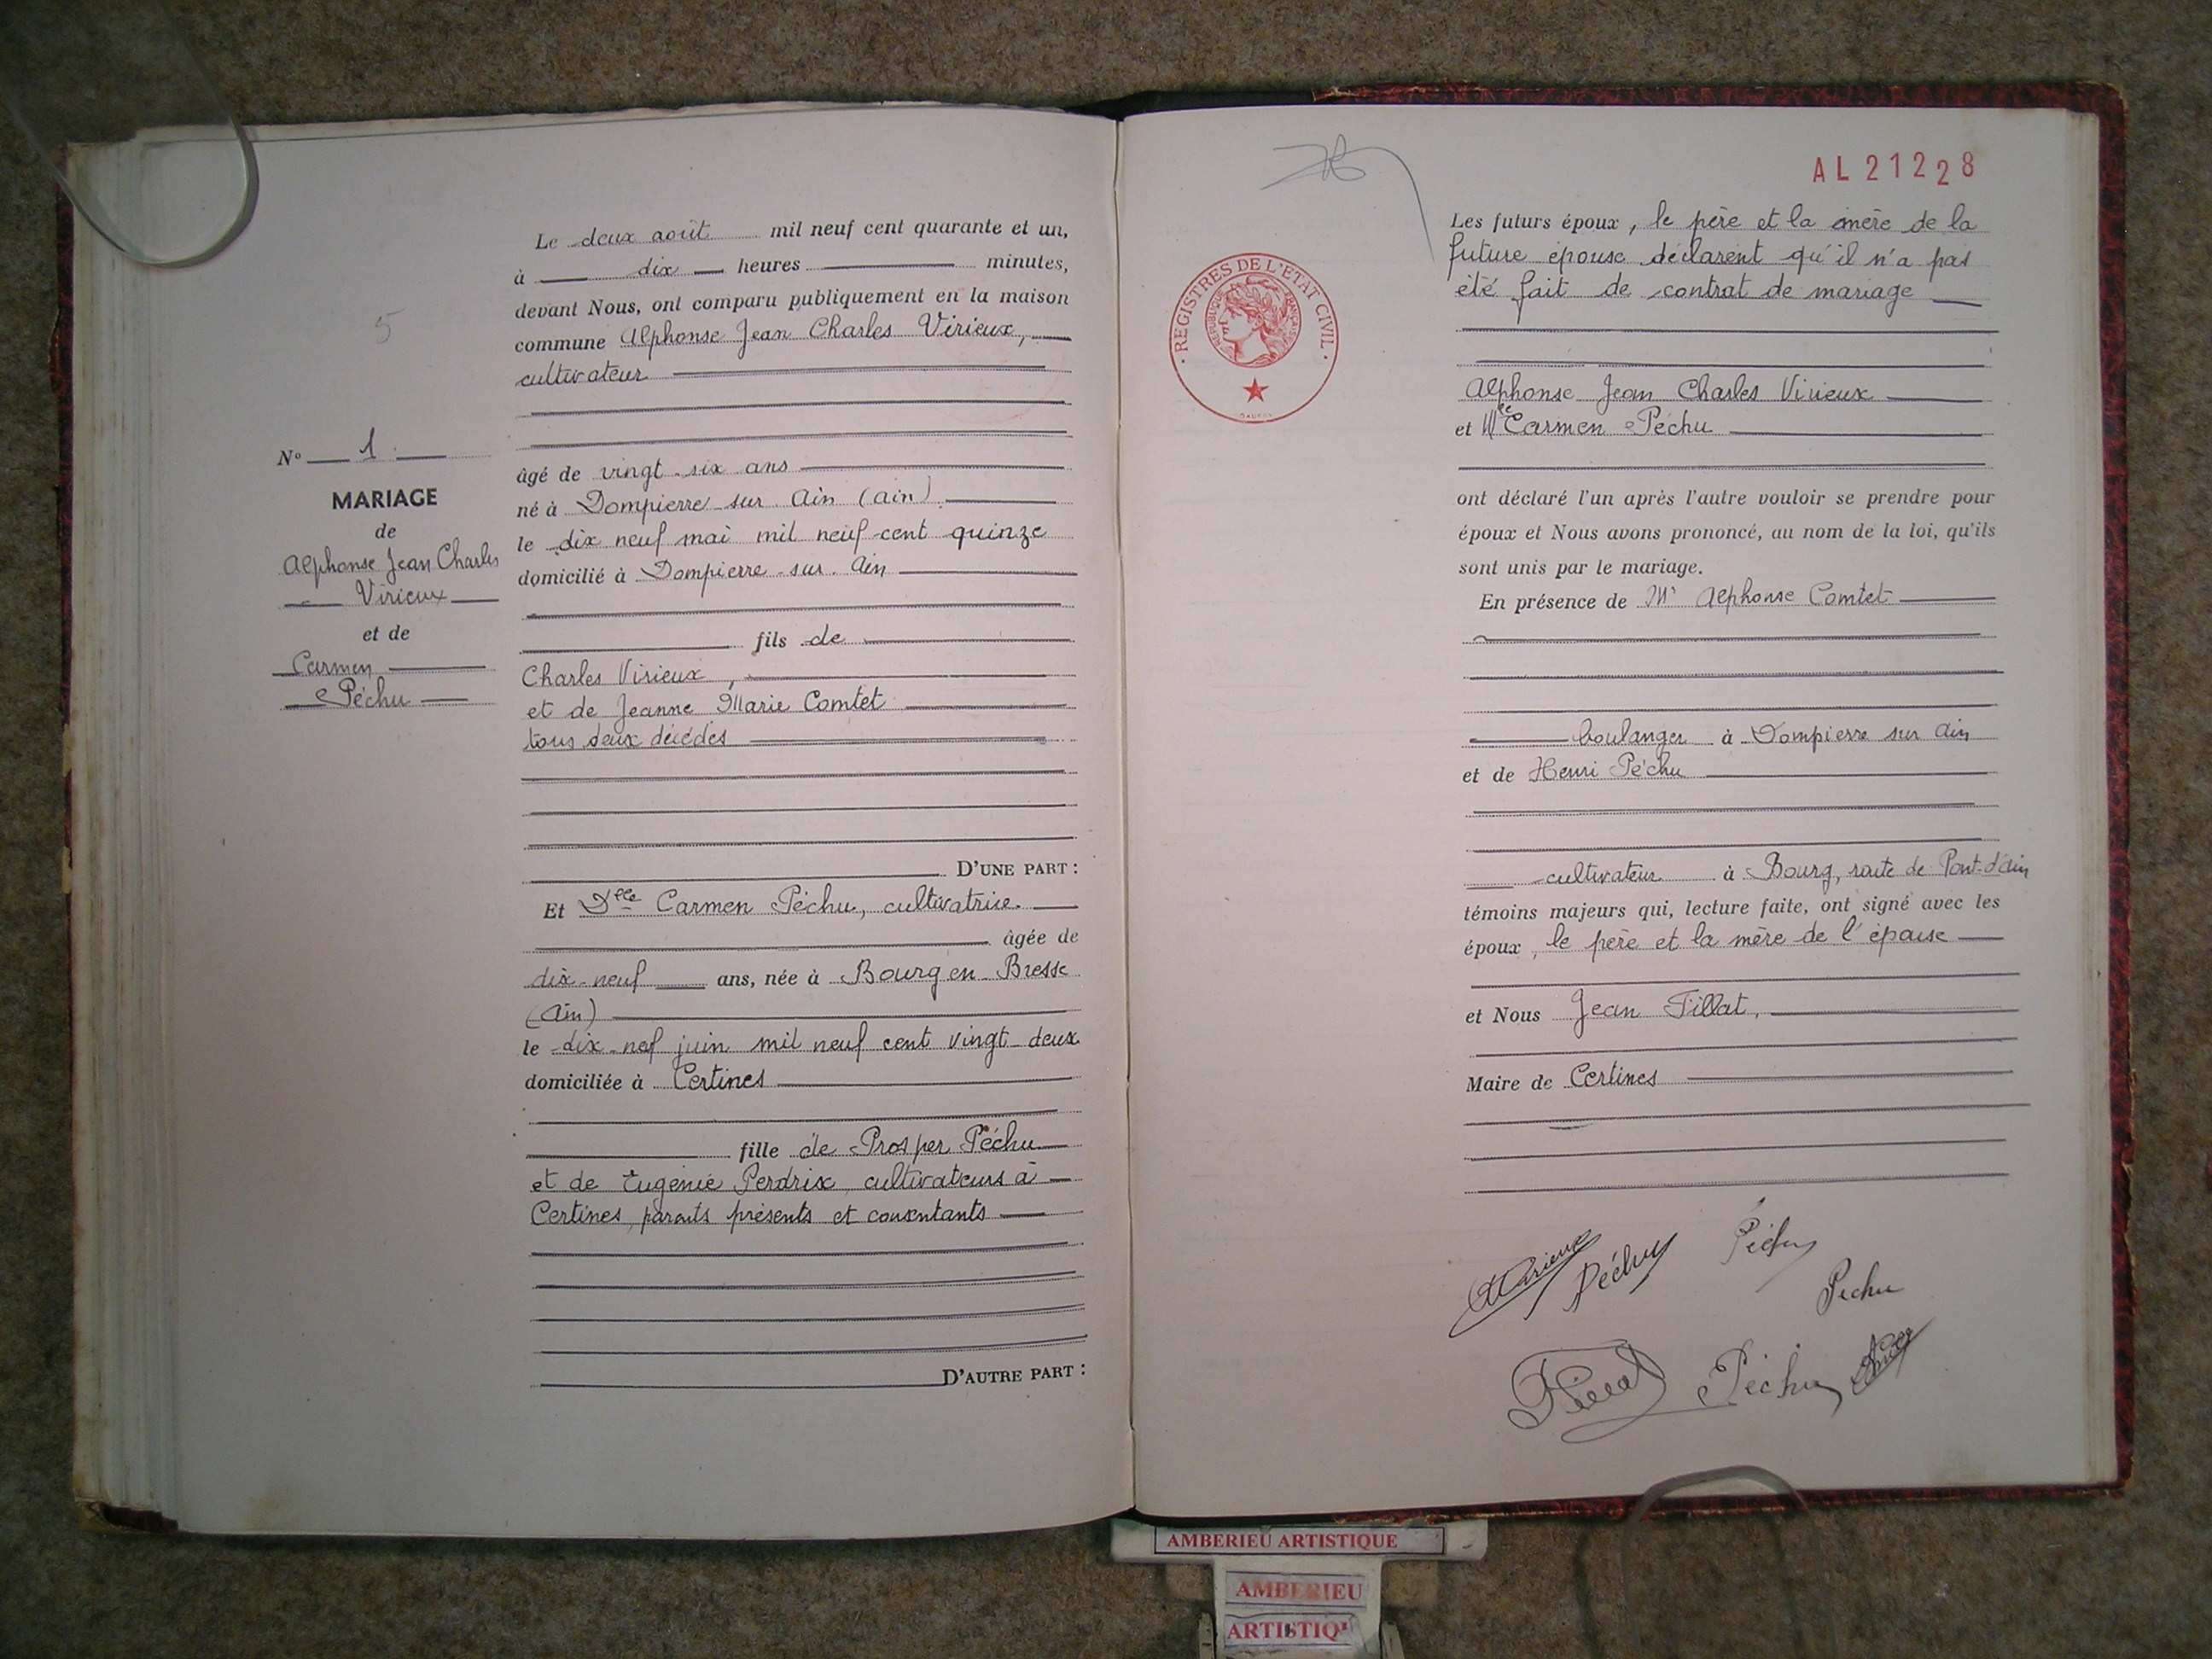 5
Le deux août mil neuf cent quarante et un,
à dix heures minutes,
devant Nous, ont comparu publiquement en la maison
commune Alphonse Jean Charles Virieux,
cultivateur
âgé de vingt-six ans
né à Dompierre sur Ain (Ain)
le dix neuf mai mil neuf cent quinze
domicilié à Dompierre-sur-Ain
fils de
Charles Virieux,
et de Jeanne Marie Comtet
tous deux décédés
D'UNE PART :
Et Dlle Carmen Péchu, cultivatrice
âgée de
dix-neuf ans, née à Bourg en Bresse
(Ain)
le dix-nef juin mil neuf cent vingt-deux
domiciliée à Certines
fille de Prosper Péchu
et de Eugénie Perdrix, cultivateurs à
Certines, parents présents et consentants
D'AUTRE PART :
N° 1
MARIAGE
de
Alphonse Jean Charles
Virieux
et de
Carmen
Péchu
AL 21228
REGISTRES DE L'ETAT CIVIL
REPUBLIQUE FRANÇAISE
Les futurs époux, le père et la mère de la
future épouse déclarent qu'il n'a pas
été fait de contrat de mariage
Alphonse Jean Charles Virieux
et Mlle Carmen Péchu
ont déclaré l'un après l'autre vouloir se prendre pour
époux et Nous avons prononcé, au nom de la loi, qu'ils
sont unis par le mariage.
En présence de Mr Alphonse Comtet
boulanger à Dompierre sur Ain
et de Henri Péchu
cultivateur à Bourg, route de Pont-d'Ain
témoins majeurs qui, lecture faite, ont signé avec les
époux, le père et la mère de l'épouse
et Nous Jean Tillat,
Maire de Certines
Virieux
Péchu
Péchu
Pechu
Péchu
AMBERIEU ARTISTIQUE
AMBERIEU
ARTISTIQ